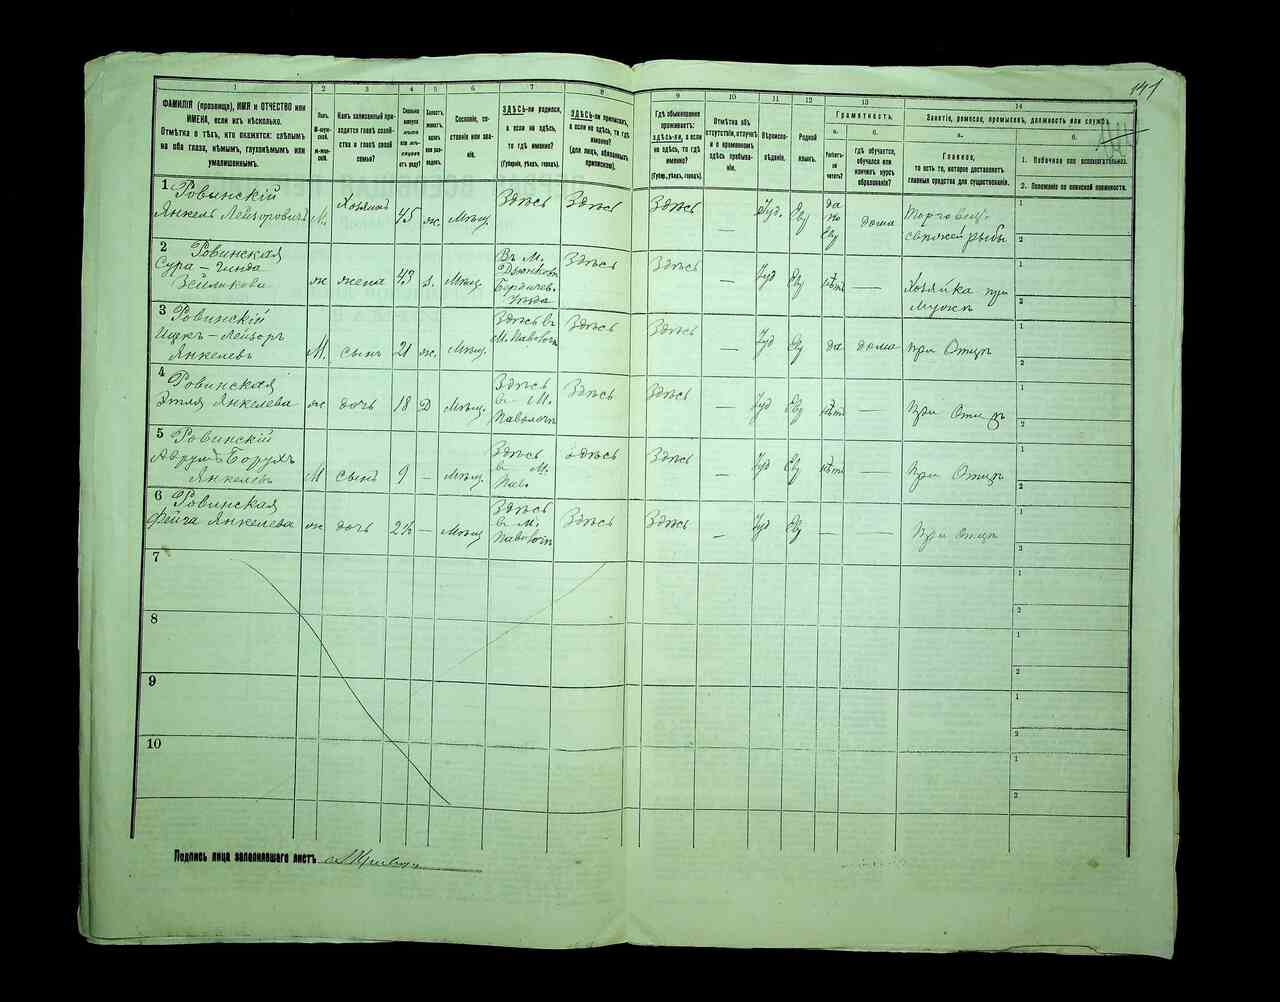 141
1 2 3 4 5 6 7 8 9 10 11 12 13 14
ФАМИЛІЯ (прозвище), ИМЯ и ОТЧЕСТВО или
ИМЕНА, если ихъ нѣсколько.
Отмѣтка о тѣхъ, кто окажется: слѣпымъ
на оба глаза, нѣмымъ, глухонѣмымъ или
умалишеннымъ.
Полъ.
М-мужской.
Ж-женскій.
Какъ записанный приходится главѣ хозяйства и главѣ своей
семьи?
Сколько
минуло
лѣтъ
Холостъ,
женатъ,
вдовъ
или разведенъ.
Сословіе, состояніе или званіе.
ЗДѢСЬ-ли родился,
а если не здѣсь,
то гдѣ именно?
(Губернія, уѣздъ, городъ).
ЗДѢСЬ-ли приписанъ,
а если не здѣсь, то гдѣ
именно?
(для лицъ, обязанныхъ
припискою).
Гдѣ обыкновенно
проживаетъ:
здѣсь-ли, а если
не здѣсь, то гдѣ
именно?
(Губер., уѣздъ, городъ).
Отмѣтка объ
отсутствіи, отлучкѣ
и о временномъ
здѣсь пребываніи.
Вѣроисповѣданіе.
Родной
языкъ.
Грамотность.
а.
Умѣетъ-ли
читать?
б.
Гдѣ обучается,
обучался или
кончилъ курсъ
образованія?
Занятіе, ремесло, промыселъ, должность или служба.
а.
Главное,
то есть то, которое доставляетъ
главныя средства для существованія.
б.
1. Побочное или вспомогательное.
2. Положеніе по воинской повинности.
1 Ровинскій
Янкель Лейзоровичъ М. Хозяинъ 45 ж. Мѣщ. Здѣсь Здѣсь Здѣсь — Іуд. Евр да по Евр дома Торговец свѣжей рыбы
2 Ровинская
Сура – Гинда
ж жена 43 з. Мѣщ. Въ М. Бердичев. Уѣзда Здѣсь Здѣсь — Іуд Евр нѣтъ — Хозяйка при мужѣ
3 Ровинскій
Ицекъ – Лейзоръ
Янкелевъ М. сынъ 21 ж. Мѣщ. Здѣсь въ М. Паволочи Здѣсь Здѣсь — Іуд Евр да дома при Отцѣ
4 Ровинская
Этля Янкелева ж дочь 18 Д Мѣщ. Здѣсь в М. Паволочи Здѣсь Здѣсь — Іуд Евр нѣтъ — при Отцѣ
5 Ровинскій
Аврумъ Борухъ
Янкелевъ М сынъ 9 — Мѣщ. Здѣсь в М. Пав. здѣсь Здѣсь — Іуд Евр нѣтъ — при Отцѣ
6 Ровинская
Фейга Янкелева ж дочь 2½ — Мѣщ Здѣсь в М. Паволочи Здѣсь Здѣсь — Іуд Евр — — При Отцѣ
7
8
9
10
Подпись лица заполнявшаго листъ